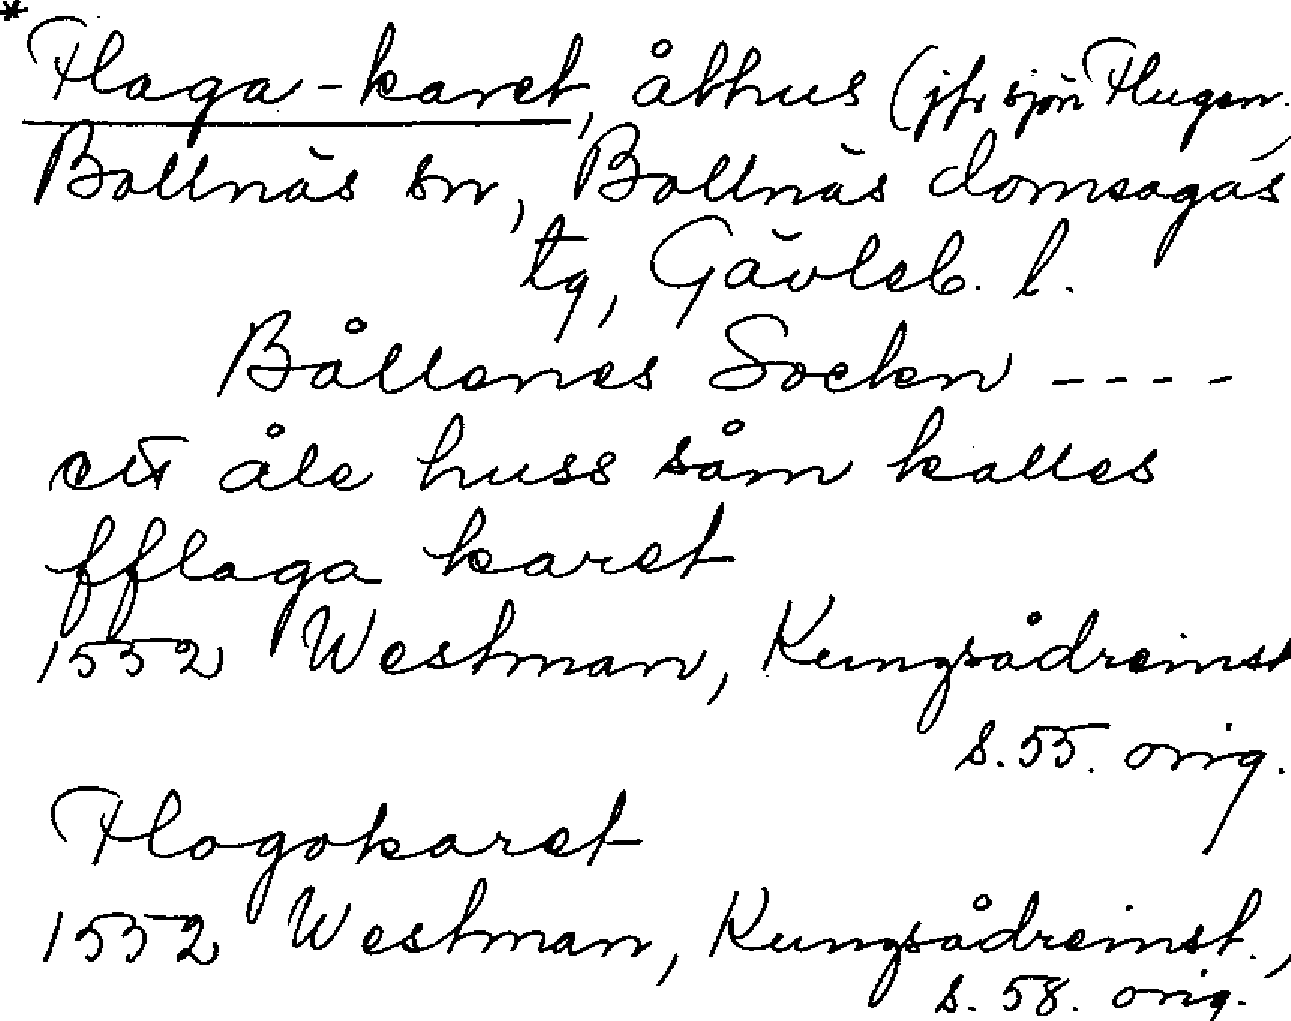 *
Flaga-karet, ålhus (jfr sjön Flugen.)
Bollnäs sn, Bollnäs domsagas
tg, Gävleb. l.
Bållenes Sockn ----
ett åle huss såm kalles
fflaga karet
1552 Westman, Kungsådreinst
s. 55. orig.
Flogokaret
1552 Westman, Kungsådreinst.,
s. 58. orig.